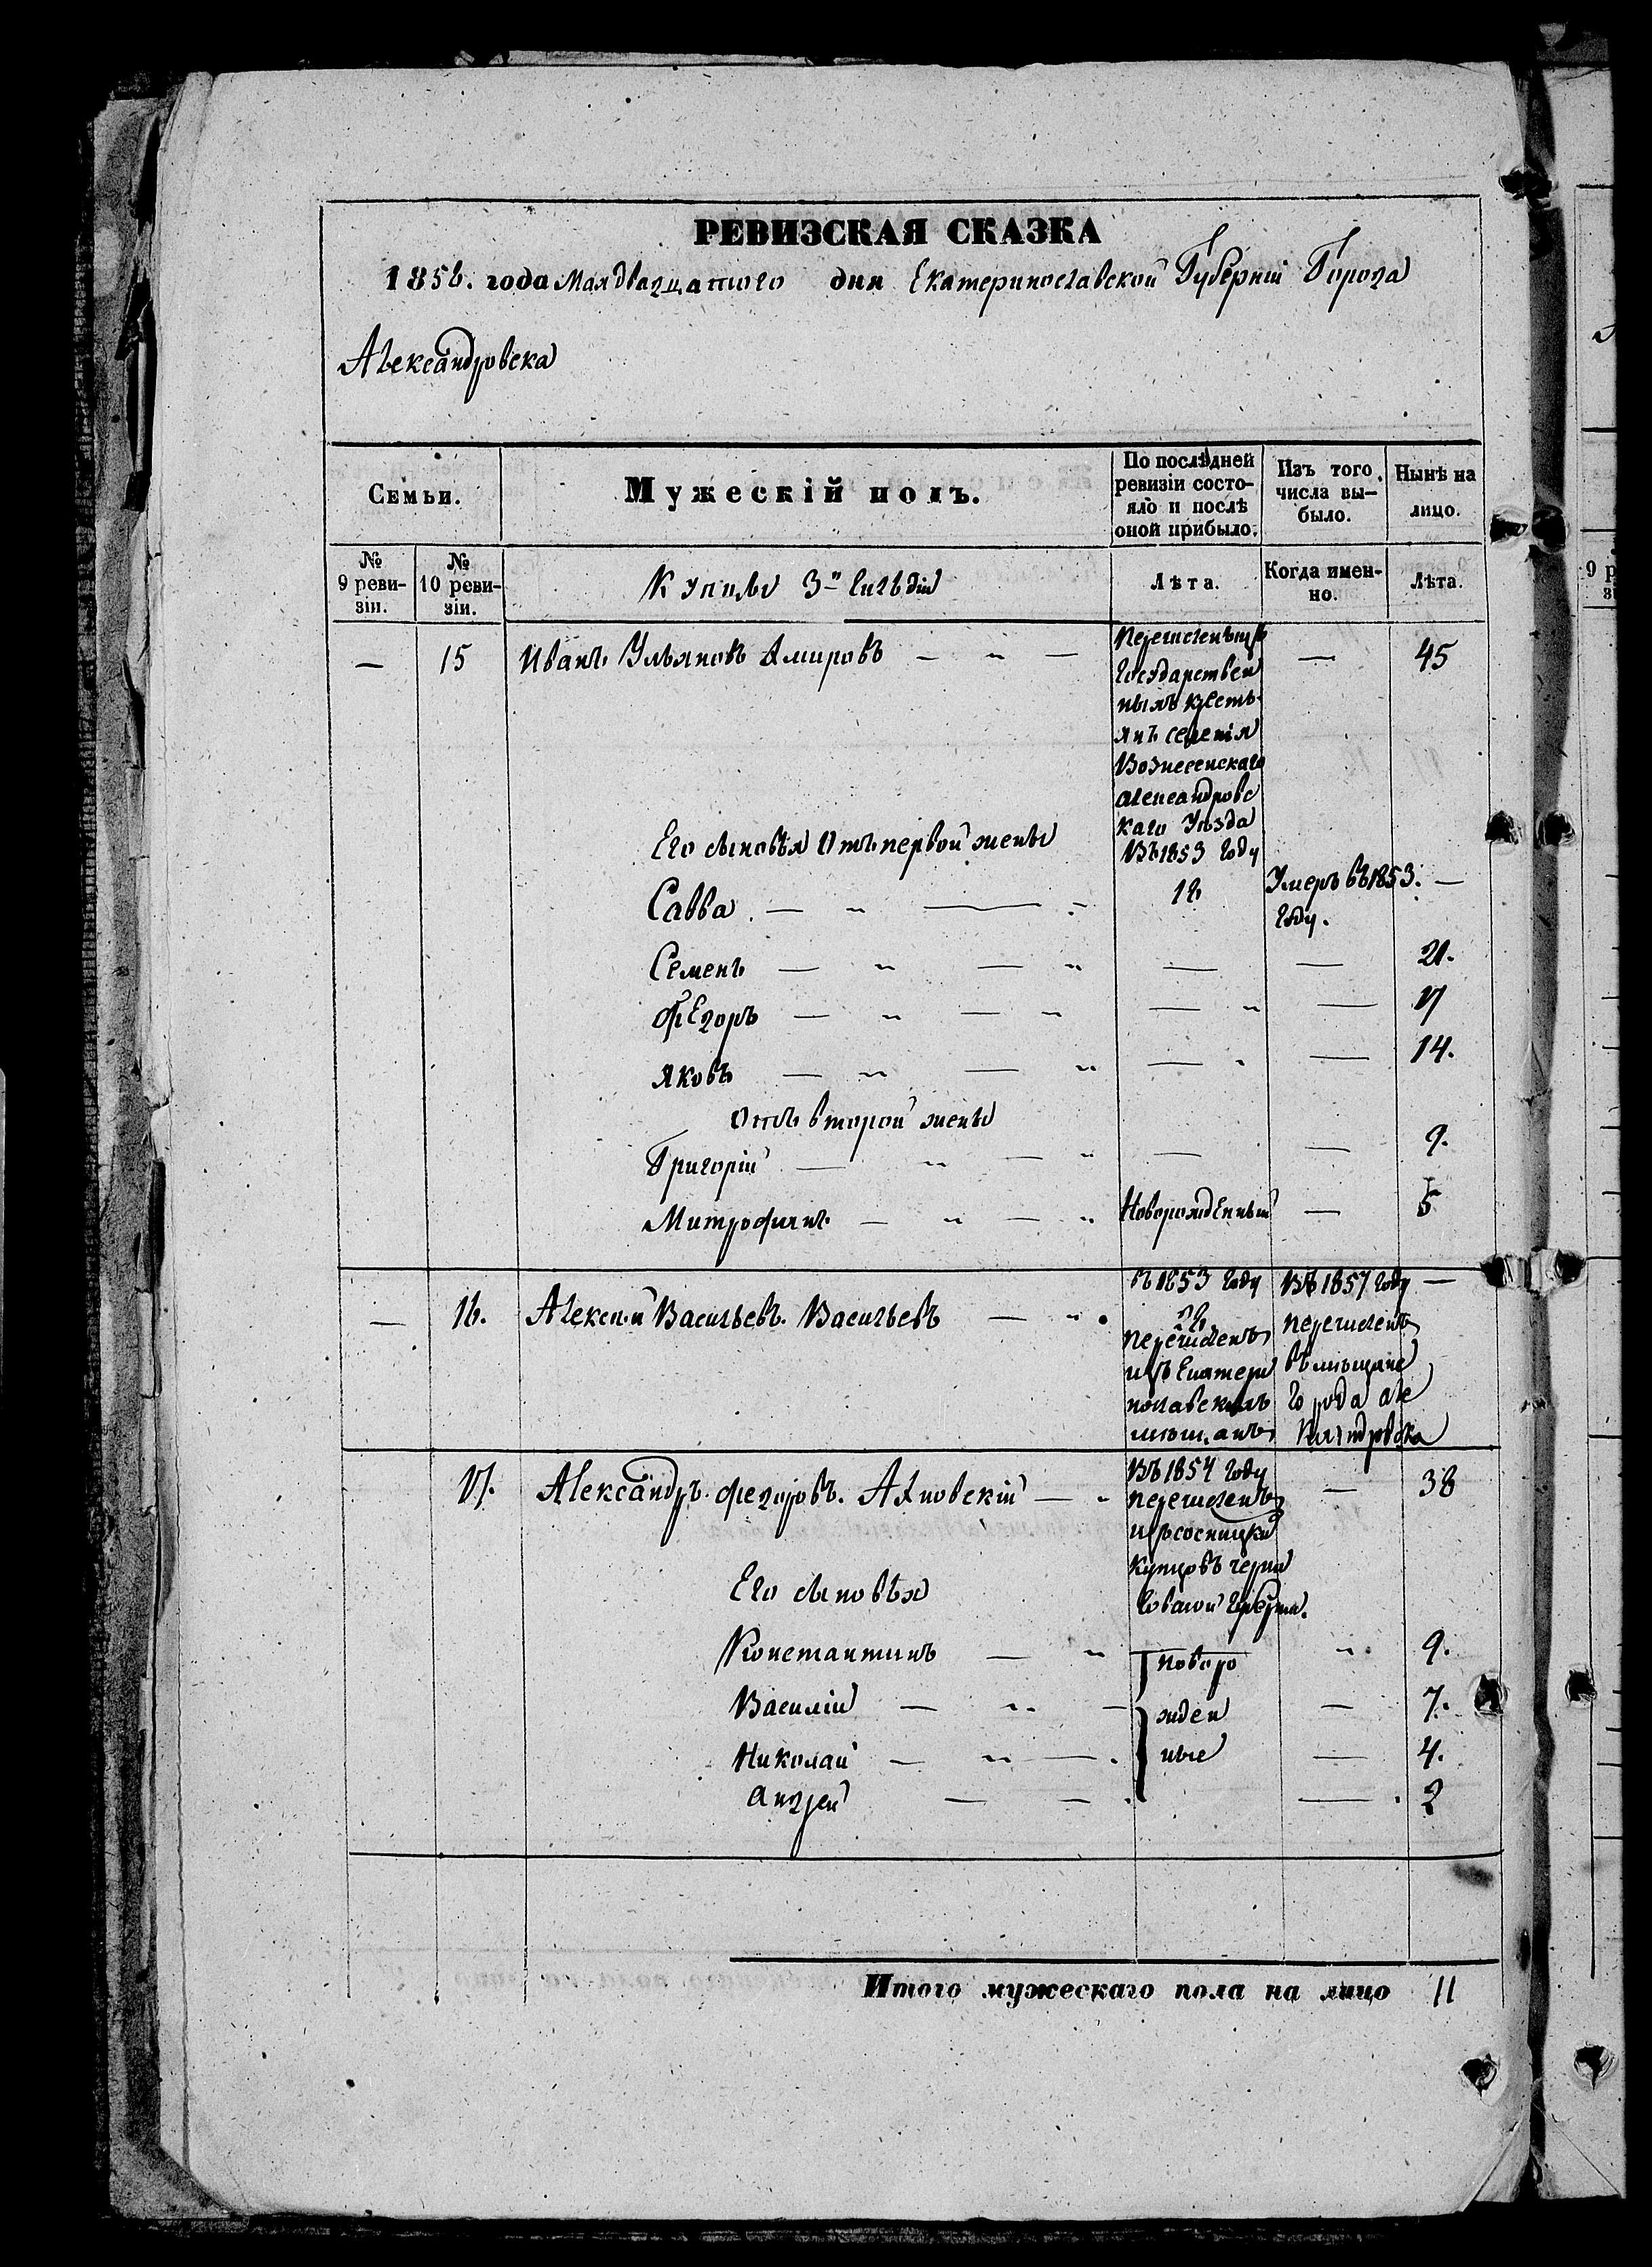 РЕВИЗСКАЯ СКАЗКА
1858. года Мая двадцатого дня Екатеринославской Губерніи Города
Александровска
Семьи.
Мужескій полъ.
По послѣдней
ревизіи состо-
яло и послѣ
оной прибыло.
Изъ того
числа вы-
было.
Нынѣ на
лицо.
№
9 реви-
зіи.
№
10 реви-
зіи.
Купцы 3й Гильдіи
Лѣта.
Когда имен-
но.
Лѣта.
— 15 Иванъ Ульяновъ Амировъ — 45
Перечисленъ изъ
Государствен
ныхъ кресть
янъ селенія
Вознесенскаго
Александровс
каго Уѣзда
Въ 1853 году
Его сыновья отъ первой жены
Савва — Умеръ въ 1853. —
году.
Семенъ — 21.
Федоръ — 17
Яковъ — 14.
отъ второй жены
Григорій — 9.
Митрофанъ — Новорожденный — 5
— 16. Алексѣй Васильевъ Васильевъ —
въ 1853 году
перечисленъ
изъ Екатери
нославскихъ
мѣщанъ
Въ 1857 году —
перечисленъ
въ мѣщане
города Але
ксандровска
17. Александръ Федоровъ. Ахновскій — 38
Въ 1854 году
перечисленъ
изъ сосницких
купцовъ Черни
говской Губерніи.
Его сыновья
Константинъ — новоро 9.
Василій — жден — 7.
Николай — ные — 4.
Андрей — 2
Итого мужескаго пола на лицо 11